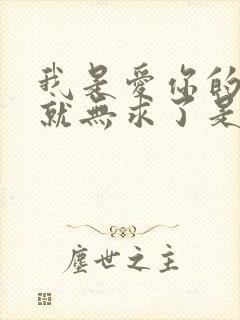 我是愛你的
就無求了是
塵世之主